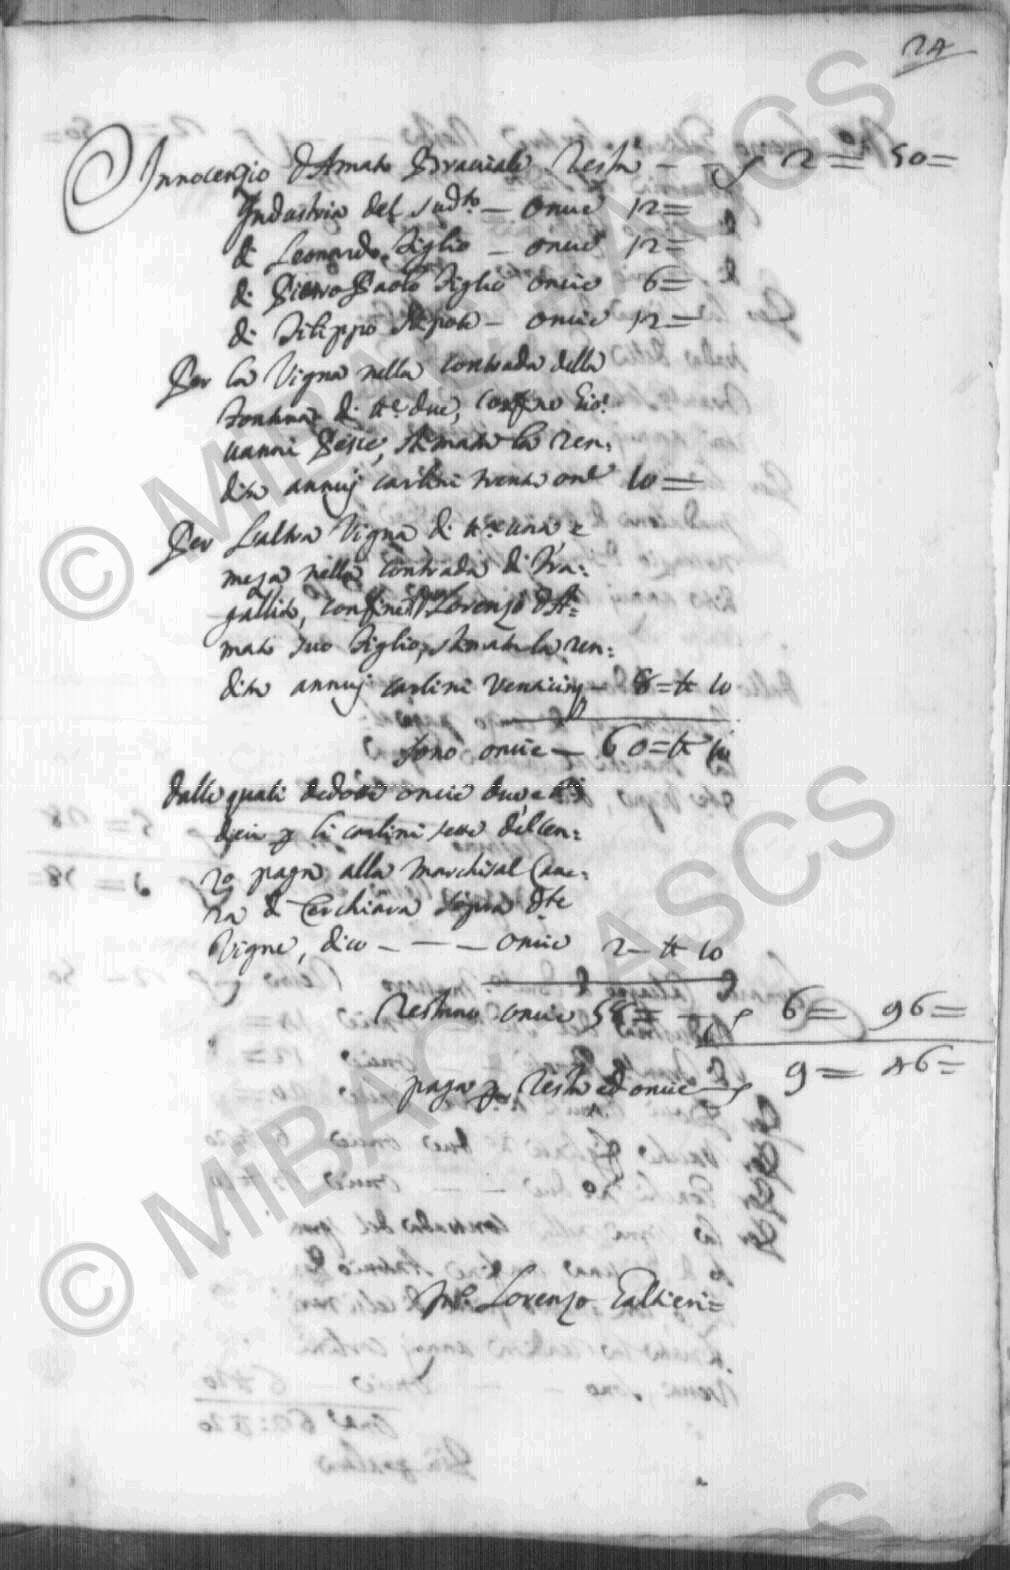 24
Innocenzio d'Amato Bracciale Testa - - 2 = 50 =
Industria del sud.to - oncie 12 =
di Leonardo figlio - oncie 12 =
di Pietro Paolo figlio oncie 6 =
di Filippo - oncie 12 =
Per la Vigna nella contrada della
Fontana di tt.e due, confino Gio:
vanni Pesce, stimata la ren:
dita annuj carlini trenta on.e 10 =
Per l'altra Vigna di tt.e una, e
meza nella contrada di Fra:
gallito, confine Lorenzo d'A:
mato suo figlio, stimata la ren:
dita annuj carlini venticinq - 8 = tt 10
sono oncie - 60 = tt 10
dalle quali oncie due, e
dieci p li carlini sette del cen:
zo paga alla Marchisal Came:
ra di Cerchiara sopra d.te
Vigne, dico - - - oncie 2 - tt 10
Restano oncie 58 = - 6 = 96 =
paga p Testa ed oncie - 9 = 46 =
Lorenzo Galtieri =
© MiBAC ASCS
© MiBAC ASCS